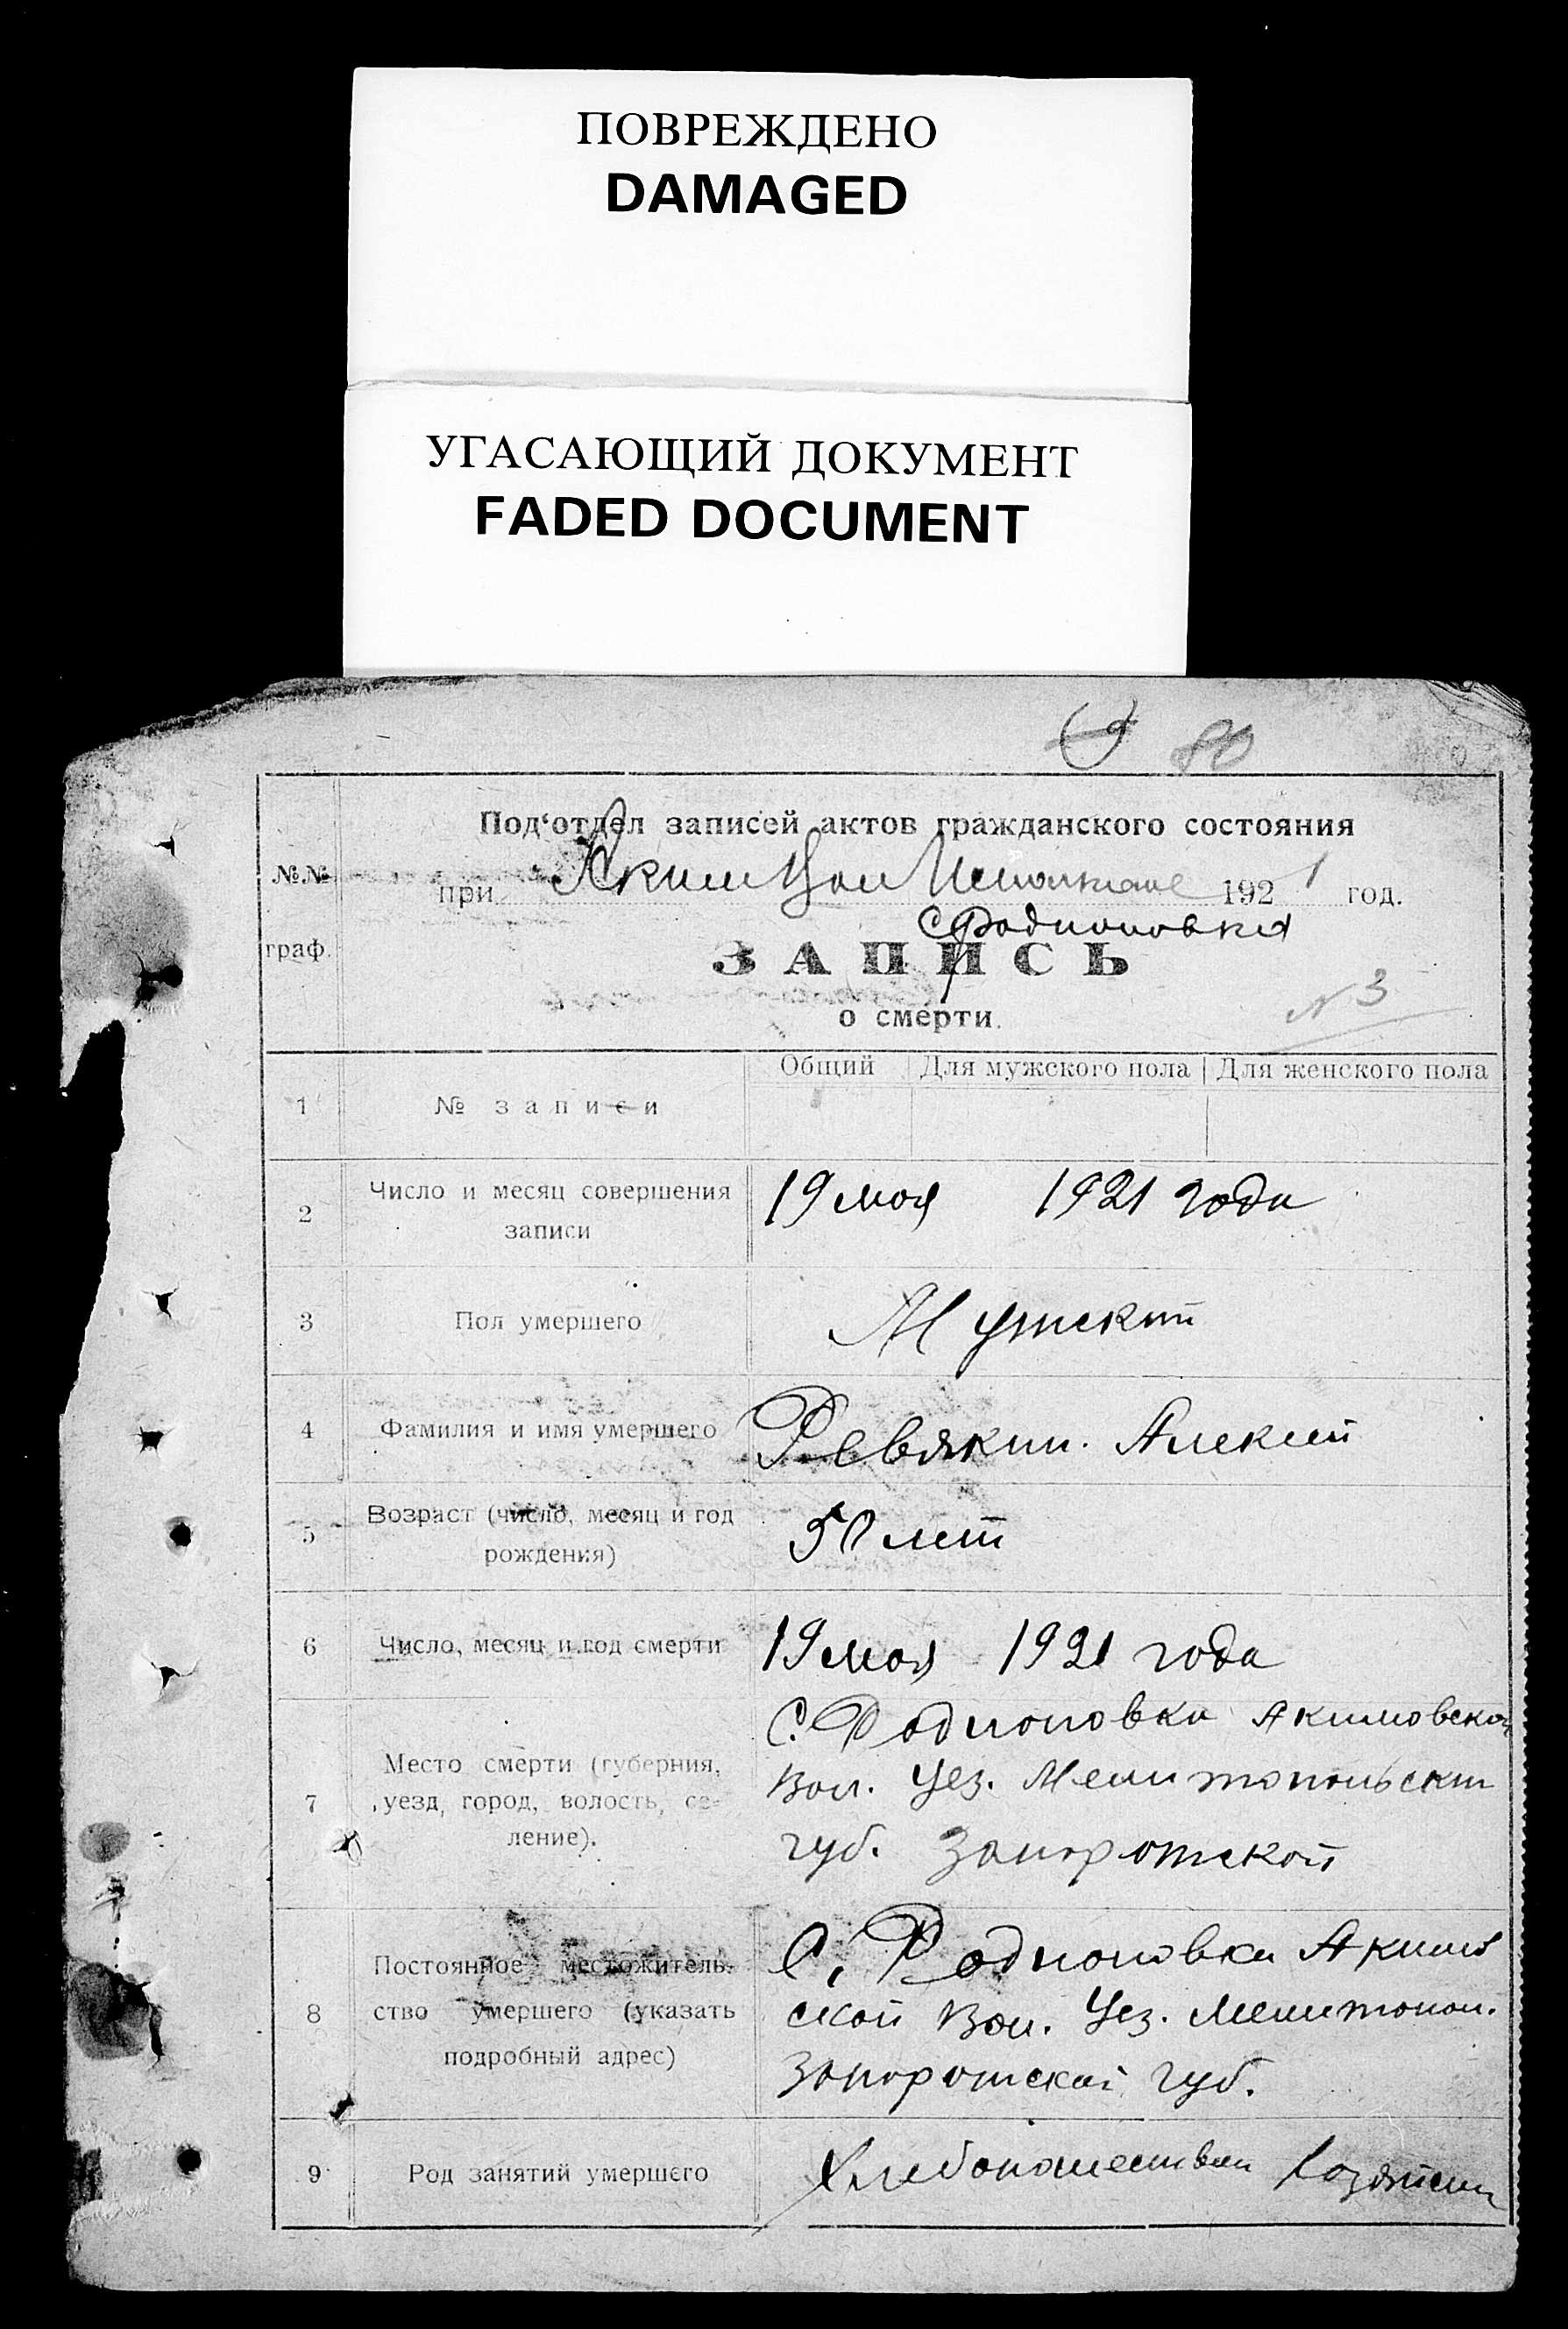 ПОВРЕЖДЕНО
DAMAGED
УГАСАЮЩИЙ ДОКУМЕНТ
FADED DOCUMENT
80
Под‘отдел записей актов гражданского состояния
№№ граф.
при Аким Вол Исполкоме 1921 год.
с Родионовка
ЗАПИСЬ
о смерти.
N 3
Общий Для мужского пола Для женского пола
1 № записи
2 Число и месяц совершения
записи
19 мая 1921 года
3 Пол умершего Мужский
4 Фамилия и имя умершего Ревякин. Алексей
5 Возраст (число, месяц и год
рождения)
50 лет
6 Число, месяц и год смерти 19 мая 1921 года
7 Место смерти (губерния,
уезд, город, волость, се-
ление).
С. Родионовка Акимовской
Вол. Уез. Мелитопольский
губ. Запорожской
8 Постоянное местожитель-
ство умершего (указать
подробный адрес)
С. Родионовка Акимов
ской Вол. Уез. Мелитопол.
Запорожской губ.
9 Род занятий умершего Хлебопашеством